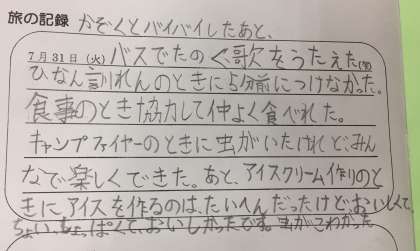 旅の記録 かぞくとバイバイしたあと、
7月31日(火) バスでたのしく歌をうたえた
ひなん訓れんのときに5分前につけなかった。
食事のとき協力して仲よく食べれた。
キャンプファイヤーのときに虫がいたけれど、みん
なで楽しくできた。あと、アイスクリーム作りのと
きにアイスを作るのは、たいへんだったけどおいしくて、
ちょい、しょっぱくて、おいしかったです。虫がこわかった